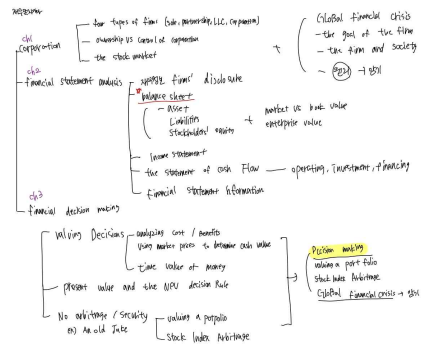 ch1
Corporation
four types of firms (sole, partnership, LLC, corporation)
ownership vs control of corporation
the stock market
+
Global financial crisis
- the goal of the firm
- the firm and society
→ 암기
ch2
financial statement analysis
firms' disclosure
balance sheet
- asset
Liabilities
stockholders' equity
+
market vs book value
enterprise value
income statement
the statement of cash Flow — operating, investment, financing
financial statement nformation
ch3
financial decision making
valuing Decisions
analyzing cost / benefits
using market prices to determine cash value
time value of money
present value and the NPV decision Rule
No arbitrage / Security
ex) An old Joke
valuing a potpolio
Stock Index Arbitrage
Decision making
valuing a port folio
stock Index Arbitrage
Global financial crisis → 암기